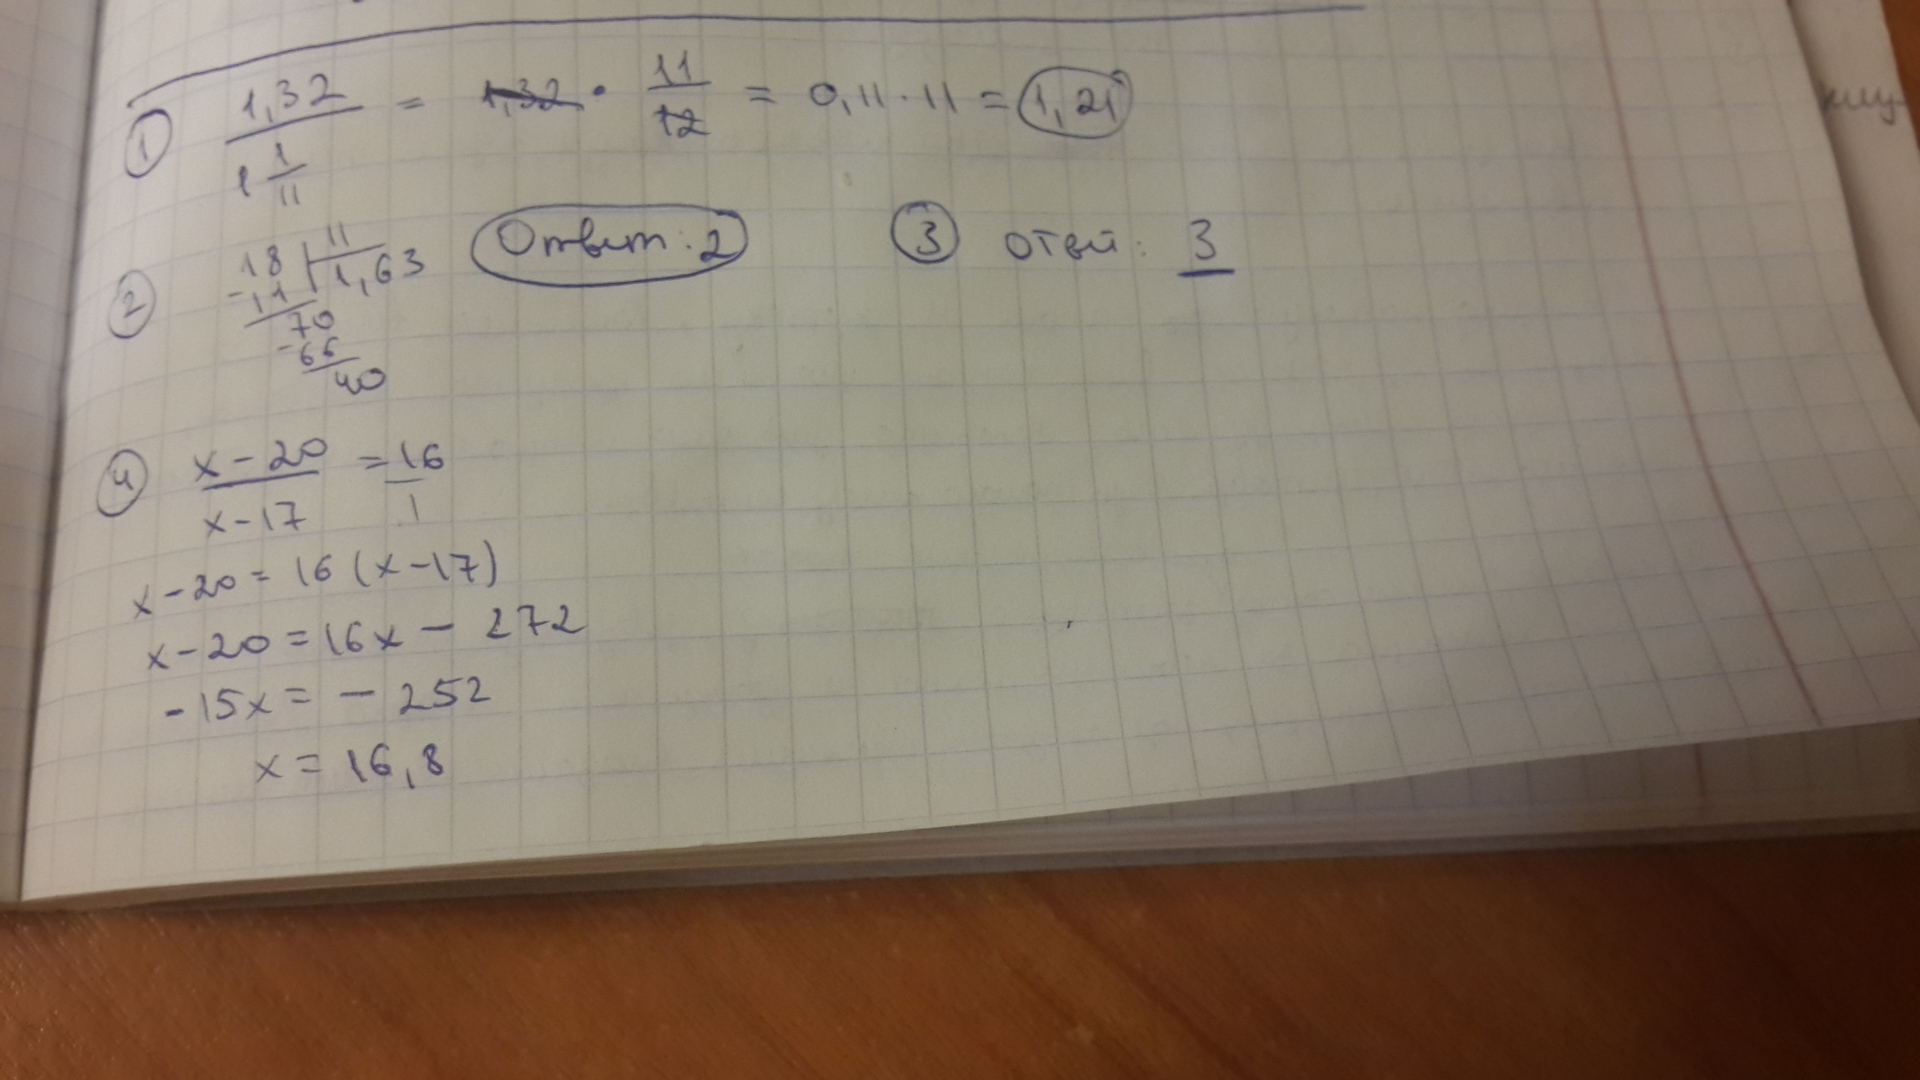 ① 1,32 / 1 1/11 = 1,32 · 11/12 = 0,11 · 11 = 1,21
② 18 | 11
- 11 | 1,63
70
- 66
40
Ответ: 2
③ ответ: 3
④ x - 20 / x - 17 = 16 / 1
x - 20 = 16 (x - 17)
x - 20 = 16x - 272
- 15x = - 252
x = 16,8